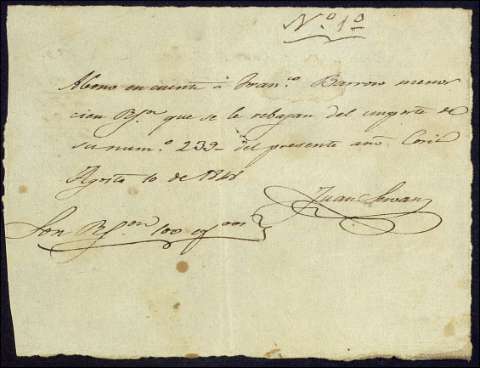 N.º 1º
Abono en cuenta á Fran.co Barrow menor
cien R.s que se le rebajan del importe de
su num.º 239 del presente año.
Agosto 10 de 1848
Juan
Son R.s 100